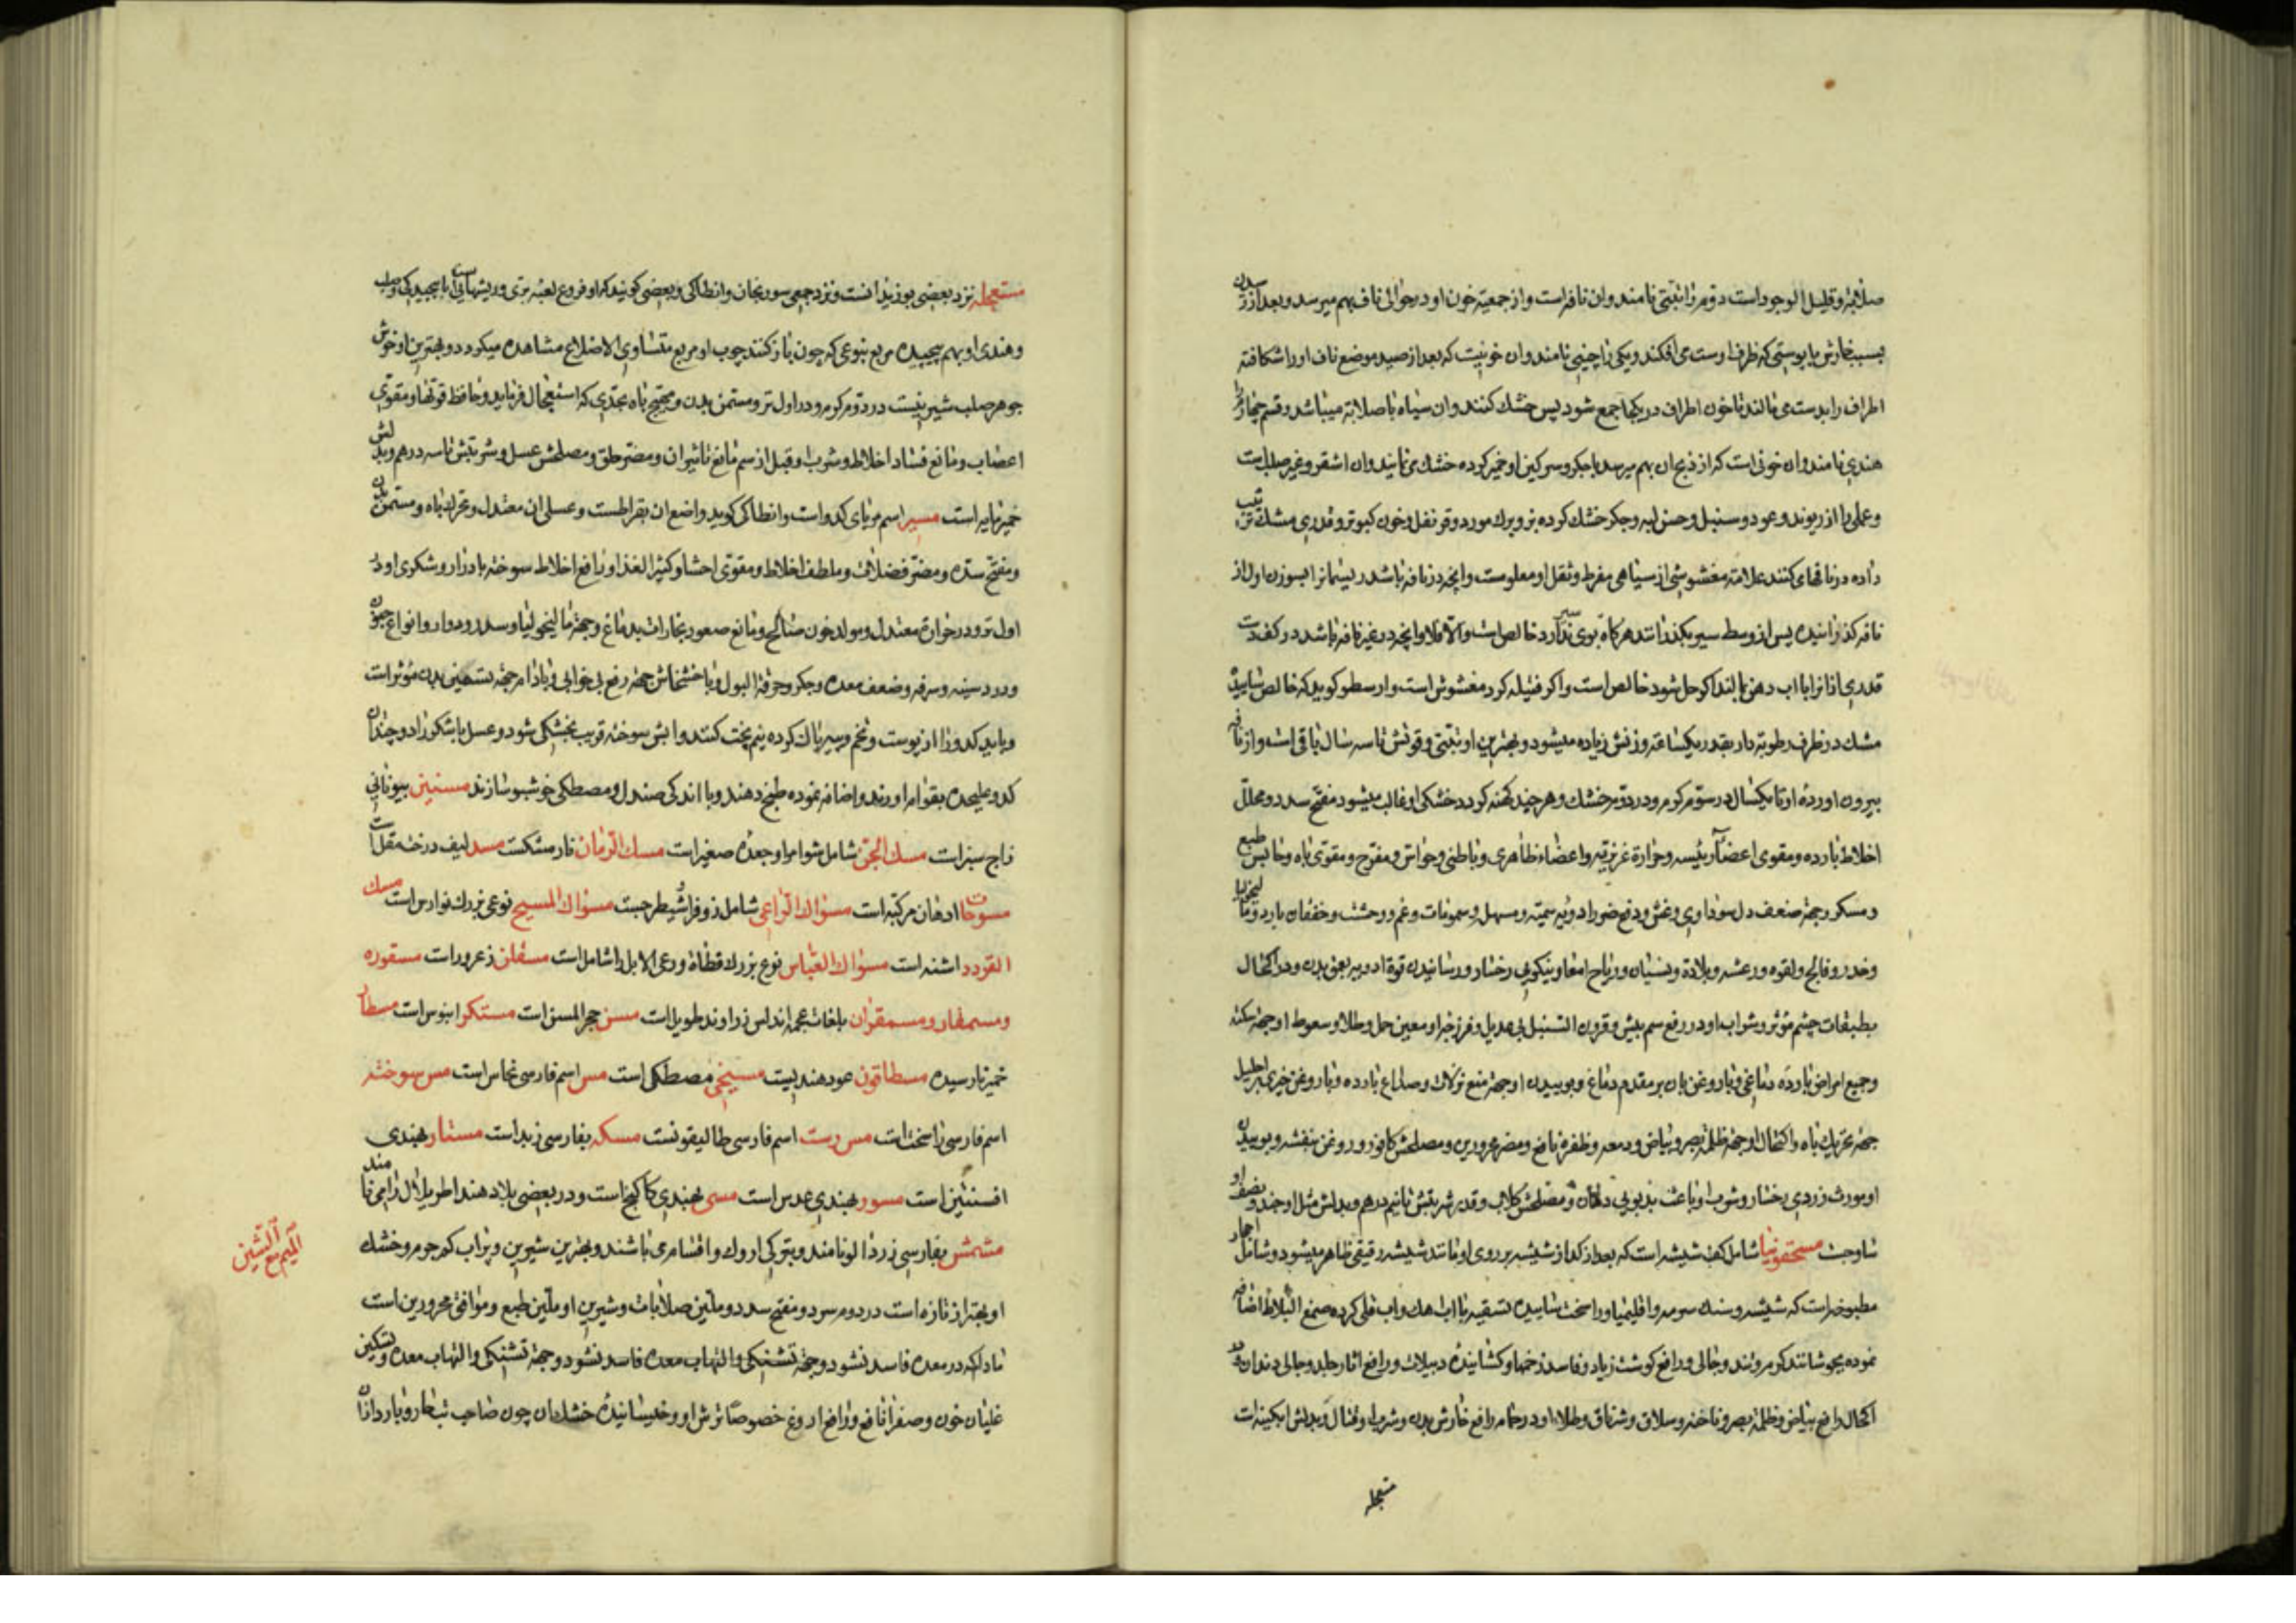 صلابة و قلیل الوجود است دوم را تبتی نامند و ان نافه است و از جمعیة خون او در حوالی ناف بهم میرسد و بعد از رسیدن
بسبب خارش با پوستی که ظرف اوست می افکند و یکی را چینی نامند و ان خونیست که بعد از صید موضع ناف او را شکافته
اطراف را بدست می مالند تا خون اطراف در یکجا جمع شود پس خشک کنند و ان سیاه با صلابة میباشد و قسم چهارم را
هندی نامند و ان خونی است که از ذبح ان بهم میرسد با جکر و سرکین او خمیر کرده خشک می نمایند و ان اشقر و غیر صلب است
و عملی را از ریوند و عود و سنبل و حسن لبه و جکر خشک کرده بز و برک مورد و قرنفل و خون کبوتر و قدری مشک ترتیب
داده در نافهای کنند علامة مغشوشی از سیاهی مفرط و ثقل او معلومست و انچه در نافه باشد ریسمانرا بسوزن اول از
نافه کذرانیده پس از وسط سیر بکذرانند هرکاه بوی سیر ندارد خالص است و الا فلا و انچه در غیر نافه باشد در کف دست
قدری ازانرا با اب دهن بمالند اکر حل شود خالص است و اکر فتیله کردد مغشوش است و ارسطو کوید که خالص ساییده
مشک در ظرف رطوبة دار بقدر یکساعة وزنش زیاده میشود و بهترین او تبتی و قوتش تا سه سال باقی است و از نافه
بیرون اورده او تا یکسال در سوم کرم و در دوم خشک و هرچند کهنه کردد خشکی او غالب میشود مفتح سدد و محلل
اخلاط بارده و مقوی اعضاء رئیسه و حرارة غریزیه و اعضاء ظاهری و باطنی و حواس و مفرح و مقوی باه و حابس طبع
و مسکر و جهة ضعف دل سوداوی و غش و دفع ضرر ادویه سمیه و مسهل و سمومات و غم و وحشت و خفقان بارد و مالیخولیا
و خدر و فالج و لقوه و رعشه و بلادة و نسیان و ریاح امعا و نیکویی رخسار و رسانیدن قوة ادویه بعمق بدن و در اکتحال
بطبقات چشم مؤثر و شراب او در رفع سم بیش و قرون السنبل بی عدیل و فرزجه او معین حمل و طلا و سعوط او جهة سکته
و جمیع امراض بارده دماغی و با روغن بان بر مقدم دماغ و بوییدن او جهة منع نزلات و صداع بارده و با روغن خیری بر احلیل
جهة تحریک باه و اکتحال او جهة ظلمة بصر و بیاض و دمعه و ظفره نافع و مضر محرورین و مصلحش کافور و روغن بنفشه و بوییدن
او مورث زردی رخسار و شرب او باعث بدبویی دهان و مصلحش کلاب و قدر شربتش تا نیم درهم و بدلش مثل او جند و نصف او
ساوجست مسحقونیا شامل کف شیشه است که بعد از کداز شیشه بر روی او مانند شیشه رقیقی ظاهر میشود و شامل اجار
مطبوخه است که شیشه و سنک سرمه و اقلیمیا و راسخت ساییده تسقیه با اب اهک و اب قلی کرده صمغ البلاط اضافه
نموده بجوشانند کرم و تند و جالی و رافع کوشت زیاد و فاسد زخمها و کشاینده دبیلات و رافع اثار جلد و جالی دندان و در
اکتحال رافع بیاض و ظلمة بصر و ناخنه و سلاق و شرناق و طلاء او در حمام رافع خارش بدن و شربا قتال و بدلش ابکینه است
مستعجله
مستعجله نزد بعضی بوزیدانست و نزد جمعی سورنجان و انطاکی و بعضی کویند که او فروع لعبه بری و ریشهای است باهم پیچیدکی و صلب
و هندی او بهم پیچیده مربع بنوعی که چون باز کنند چوب او مربع متساوی الاضلاع مشاهده میکردد و بهترین او خوش
جوهر صلب شیرینیست در دوم کرم و در اول تر و مسمن بدن و مهیج باه بحدی که استعجال فرماید و حافظ قوتها و مقوی
اعصاب و مانع فساد اخلاط و شرب او قبل از سم مانع تاثیر ان و مضر حلق و مصلحش عسل و شربتش تا سه درهم و بدلش
خمیرمایه است مسیر اسم مربای کدو است و انطاکی کوید واضع ان بقراطست و عسلی ان معتدل و محرک باه و مسمن بدن
و مفتح سده و مضر فضلات و ملطف اخلاط و مقوی احشا و کثیر الغذا و رافع اخلاط سوخته با درار و شکری او در
اول تر و در حرارة معتدل و مولد خون صالح و مانع صعود بخارات بدماغ و جهة مالیخولیا و سدر و دوار و انواع جنون
و درد سینه و سرفه و ضعف معده و جکر و حرقة البول و با خشخاش جهة رفع بی خوابی و با بادام جهة تسمین بدن مؤثر است
و باید کدو را از پوست و تخم و پیر پاک کرده نیم پخت کنند و ابش سوخته قریب بخشکی شود و عسل یا شکر را دو چندان
کدو علیحده بقوام اورند و اضافه نموده طبخ دهند و با اندکی صندل و مصطکی خوشبو سازند مسنین بیونانی
زاج سبز است مسک الجن شامل شواصرا و جعده صغیر است مسک الرمان نارمشکست مسد لیف درخت مقل است
مسوحات ادهان مرکبه است مسواک الراعی شامل زوفرا و شیطرجست مسواک المسیح نوعی بزرک نوارس است مسک
القرود اشنه است مسواک العباس نوع بزرک قطاة و رعی الابل را شامل است مسقلن ذعرور است مسقوره
و مسمقار و مسمقران بلغات عجمه اندلس زراوند طویل است مسن حجر المسن است مستکر ابنوس است مسطار
خمر نارسیده مسطاقون عود هندیست مسیخی مصطکی است مس اسم فارسی نحاس است مس سوخته
اسم فارسی راسخت است مس رست اسم فارسی طالیقونست مسکه بفارسی زبد است مستار بهندی
افسنتین است مسور بهندی عدس است مسی بهندی کاکنج است و در بعضی بلاد هند اطریلال را می نامند
مشمش بفارسی زردالو نامند و بترکی اروک و اقسام می باشند و بهترین شیرین و پراب کم جرم و خشک
او بهتر از تازه است در دوم سرد و مفتح سدد و ملین صلابات و شیرین او ملین طبع و موافق محرورین است
مادام که در معده فاسد نشود و جهة تشنکی و التهاب معده فاسد نشود و جهة تشنکی و التهاب معده و تسکین
غلیان خون و صفرا نافع و رافع اروغ خصوصا ترش او و خیسانیده خشک ان چون صاحب تب حار و بارد ازان
المیم مع الشین